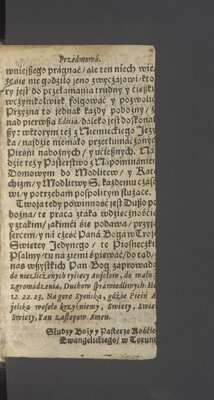 Przedmowá.
wnieyszego prágnąć/ ale ten niech wie/
że sie nie godziło jeno zwyczájowi/ kto
ry jest do przełamánia trudny y ciężki
wczymkolwiek folgowáć y pozwolić
Przyzna to jednak káżdy pobożny/ że
nád pierwszą Edicią dáleko jest doskonal
szy: wktorym też z Niemieckiego Języ
ká/ najdzie niemáło przetłumáczonych
Pieśni nabożnych/ y ućiesznych. Naj
dzie też y Pasterstwo z Nápominániem
Domowym do Modlitew/ y Kate
chizm/ y Modlitwy S. káżdemu czáso
wi/ y potrzebom pospolitym służące.
Twojá tedy powinność jest Duszo po
bożna/ te praca ták wdzięcznośćią
y tákim/ jákimći sie podáwa/ przyjąć
sercem/ y ná cześć Páná Bogá w Troy
Swiętey Jedynego/ te Piosneczki
Psalmy/ tu ná źiemi śpiewáć/ do tąd/
nas wszystkich Pan Bog záprowádzi
do niezliczonych tyśięcy Anjołow, do walne
zgromádzenia, Duchow spráwiedliwych He
12. 22. 23. Ná gorę Syońską, gdzie Pieśń A
jelską wesoło krzykniemy, Swięty, Swię
Swięty, Pan Zastępow Amen.
Słudzy Boży y Pasterze Kośćio
Ewángelickiego/ w Toruniu